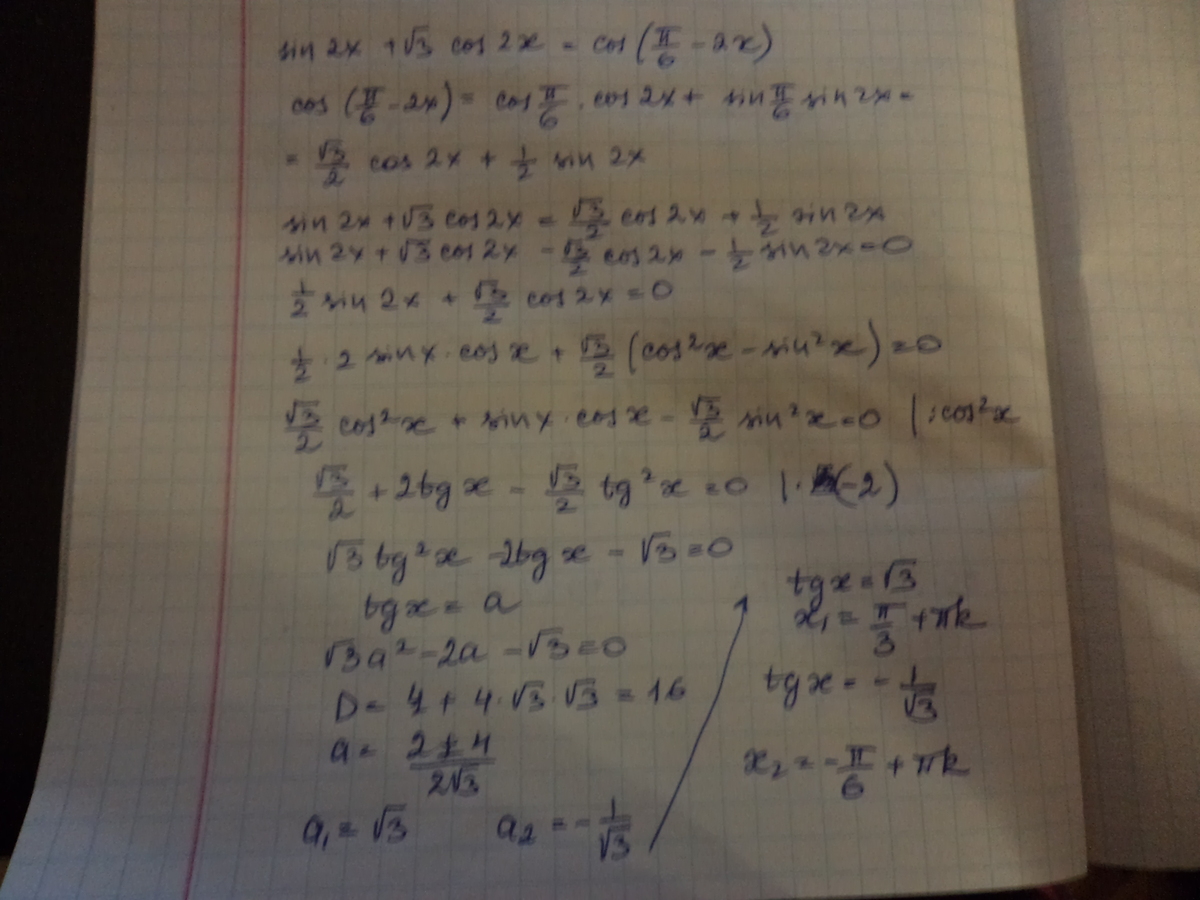 sin 2x + √3 cos 2x = cos (π/6 - 2x)
cos (π/6 - 2x) = cos π/6 · cos 2x + sin π/6 sin 2x =
= √3/2 cos 2x + 1/2 sin 2x
sin 2x + √3 cos 2x = √3/2 cos 2x + 1/2 sin 2x
sin 2x + √3 cos 2x - √3/2 cos 2x - 1/2 sin 2x = 0
1/2 sin 2x + √3/2 cos 2x = 0
1/2 · 2 sin x · cos x + √3/2 (cos²x - sin²x) = 0
√3/2 cos²x + sin x · cos x - √3/2 sin²x = 0 | : cos²x
√3/2 + 2tg x - √3/2 tg²x = 0 | · (-2)
√3 tg²x - 2tg x - √3 = 0
tg x = a
√3a² - 2a - √3 = 0
D = 4 + 4 · √3 · √3 = 16
a = (2 ± 4)/(2√3)
a₁ = √3 a₂ = - 1/√3
tg x = √3
x₁ = π/3 + πk
tg x = - 1/√3
x₂ = - π/6 + πk